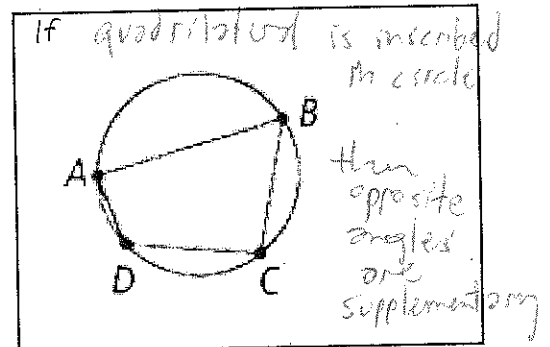 If quadrilateral is inscribed
in circle
B
then
A
opposite
angles
are
D
C
supplementary